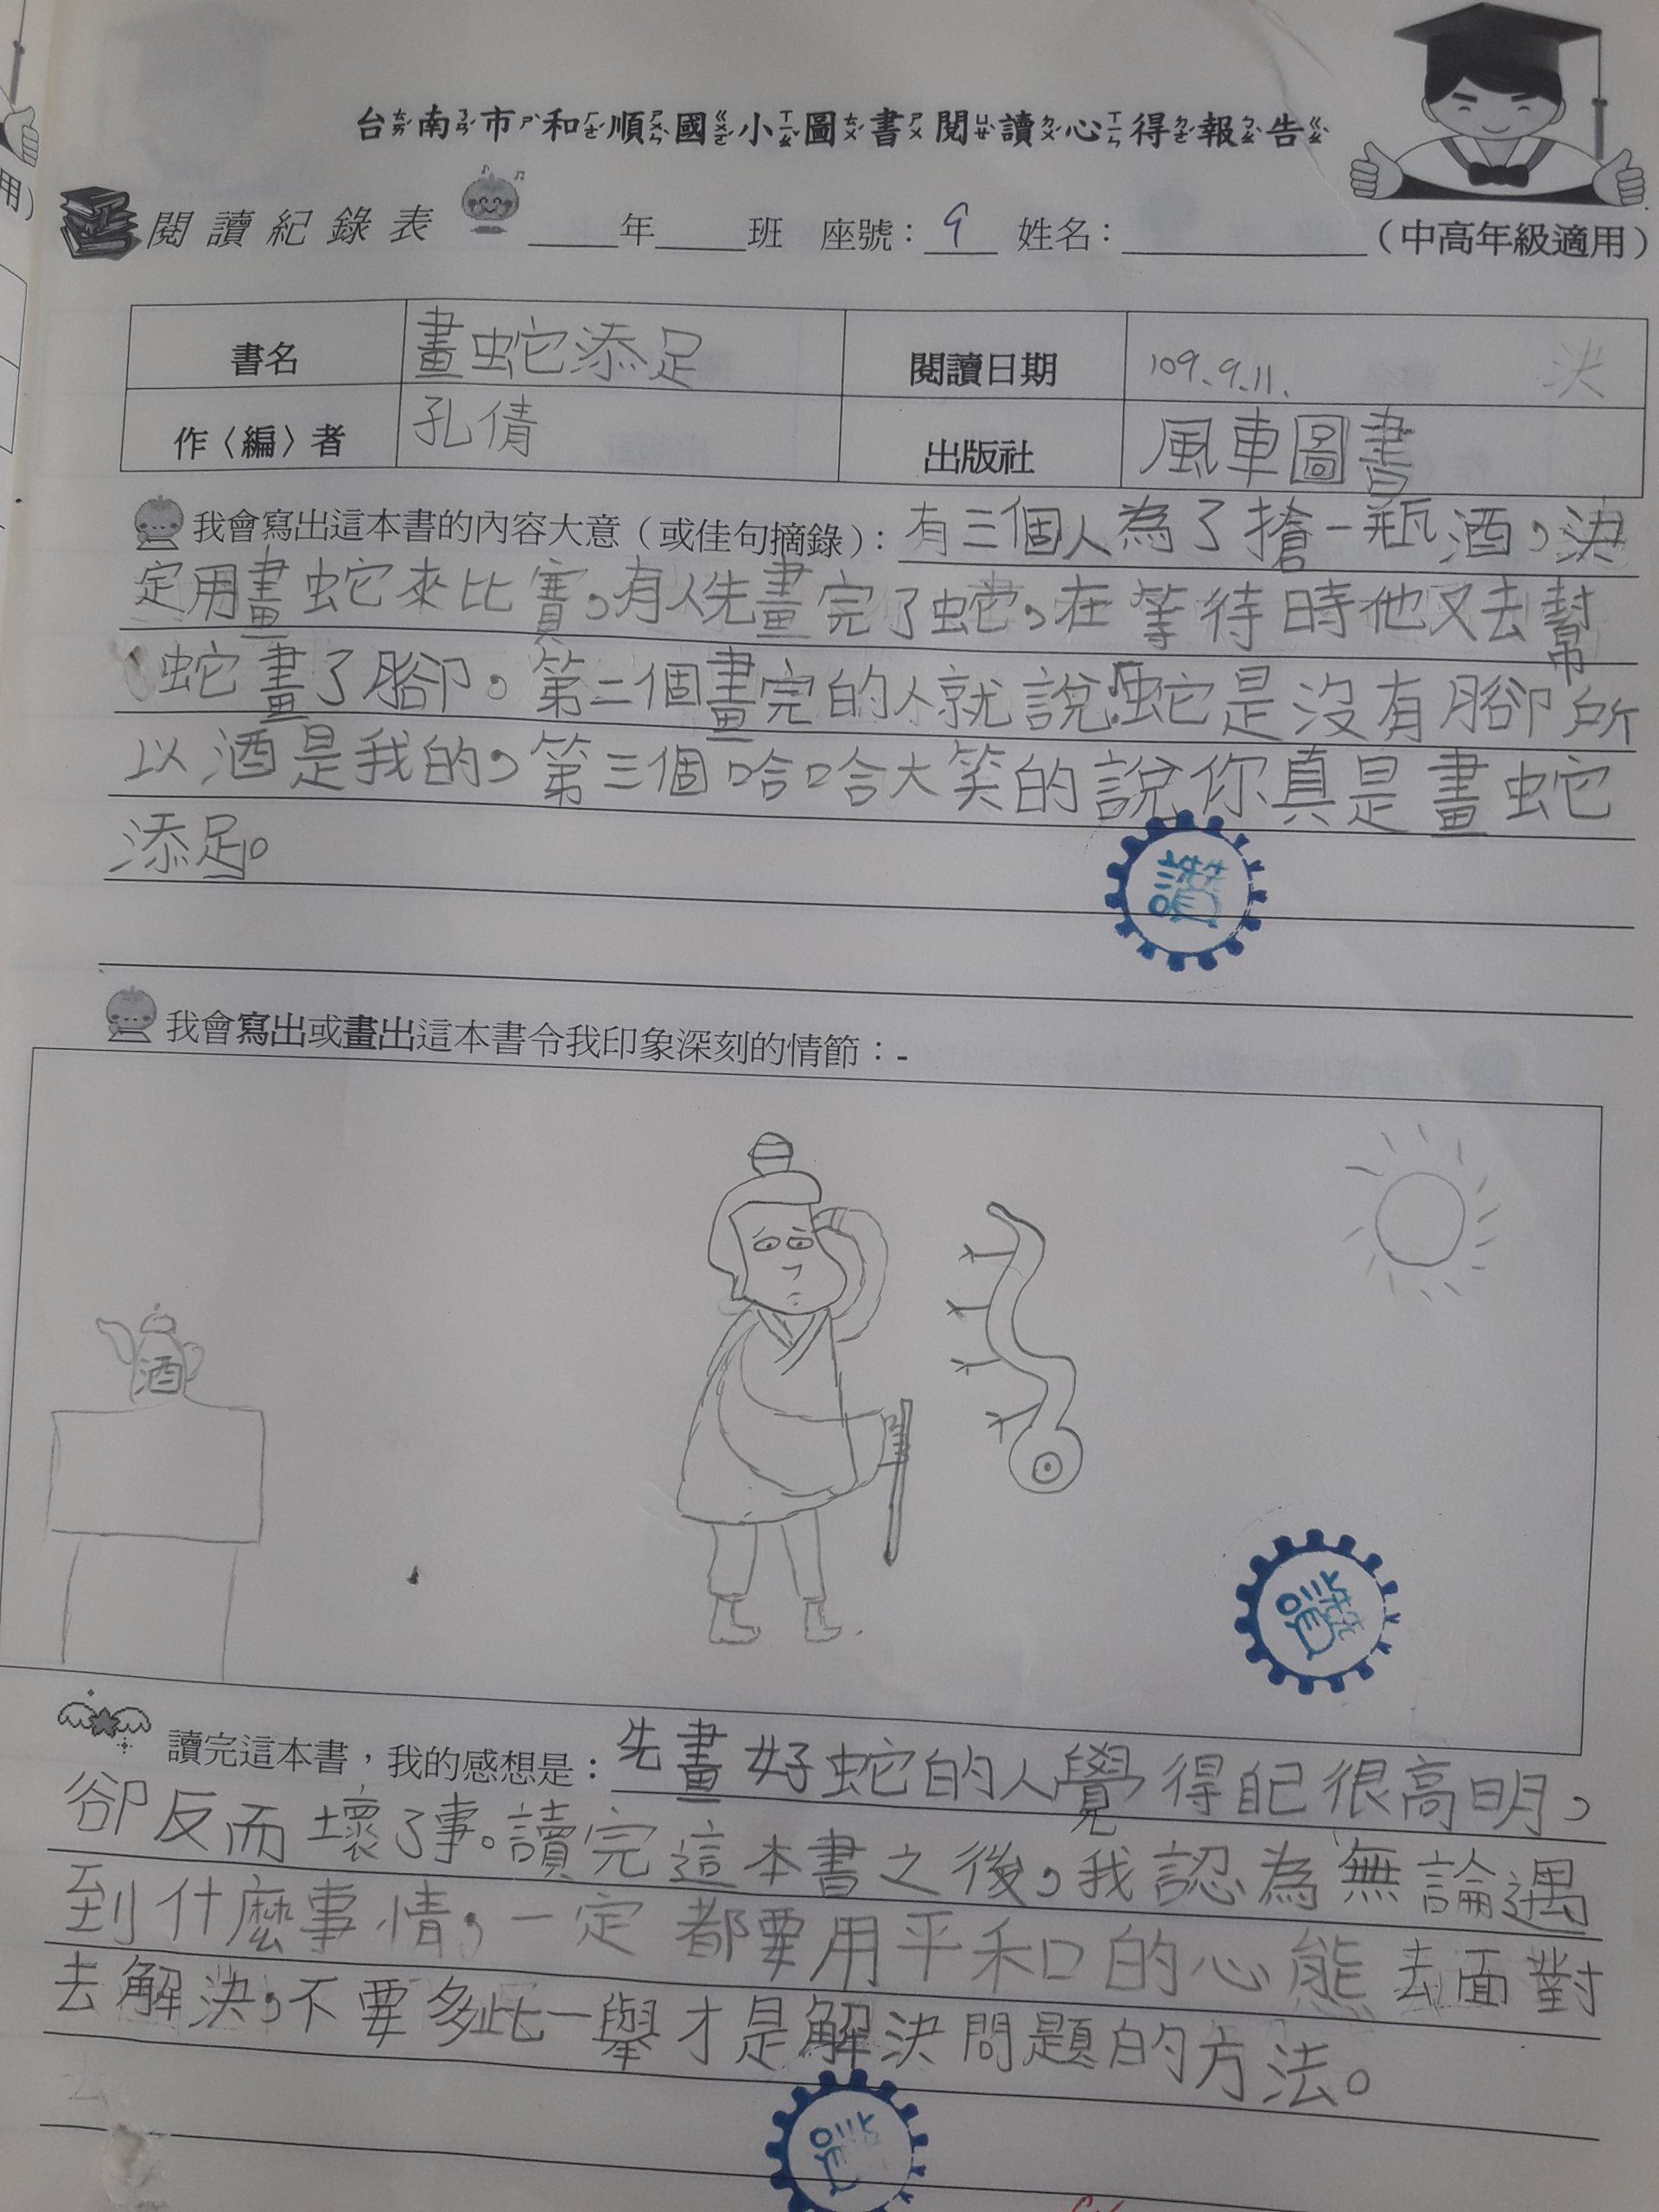 台南市和順國小圖書閱讀心得報告
閱讀紀錄表 ____年____班 座號：9 姓名：________（中高年級適用）
書名 畫蛇添足 閱讀日期 109.9.11. 決
作〈編〉者 孔倩 出版社 風車圖書
我會寫出這本書的內容大意（或佳句摘錄）：有三個人為了搶一瓶酒，決
定用畫蛇來比賽，有人先畫完了蛇，在等待時他又去幫
蛇畫了腳。第二個畫完的人就說:「蛇是沒有腳所
以酒是我的，第三個哈哈大笑的說你真是畫蛇
添足」。
讚
我會寫出或畫出這本書令我印象深刻的情節：-
酒
讚
讀完這本書，我的感想是：先畫好蛇的人覺得自己很高明，
卻反而壞了事。讀完這本書之後，我認為無論遇
到什麼事情，一定都要用平和的心態去面對
去解決，不要多此一舉才是解決問題的方法。
去
讚